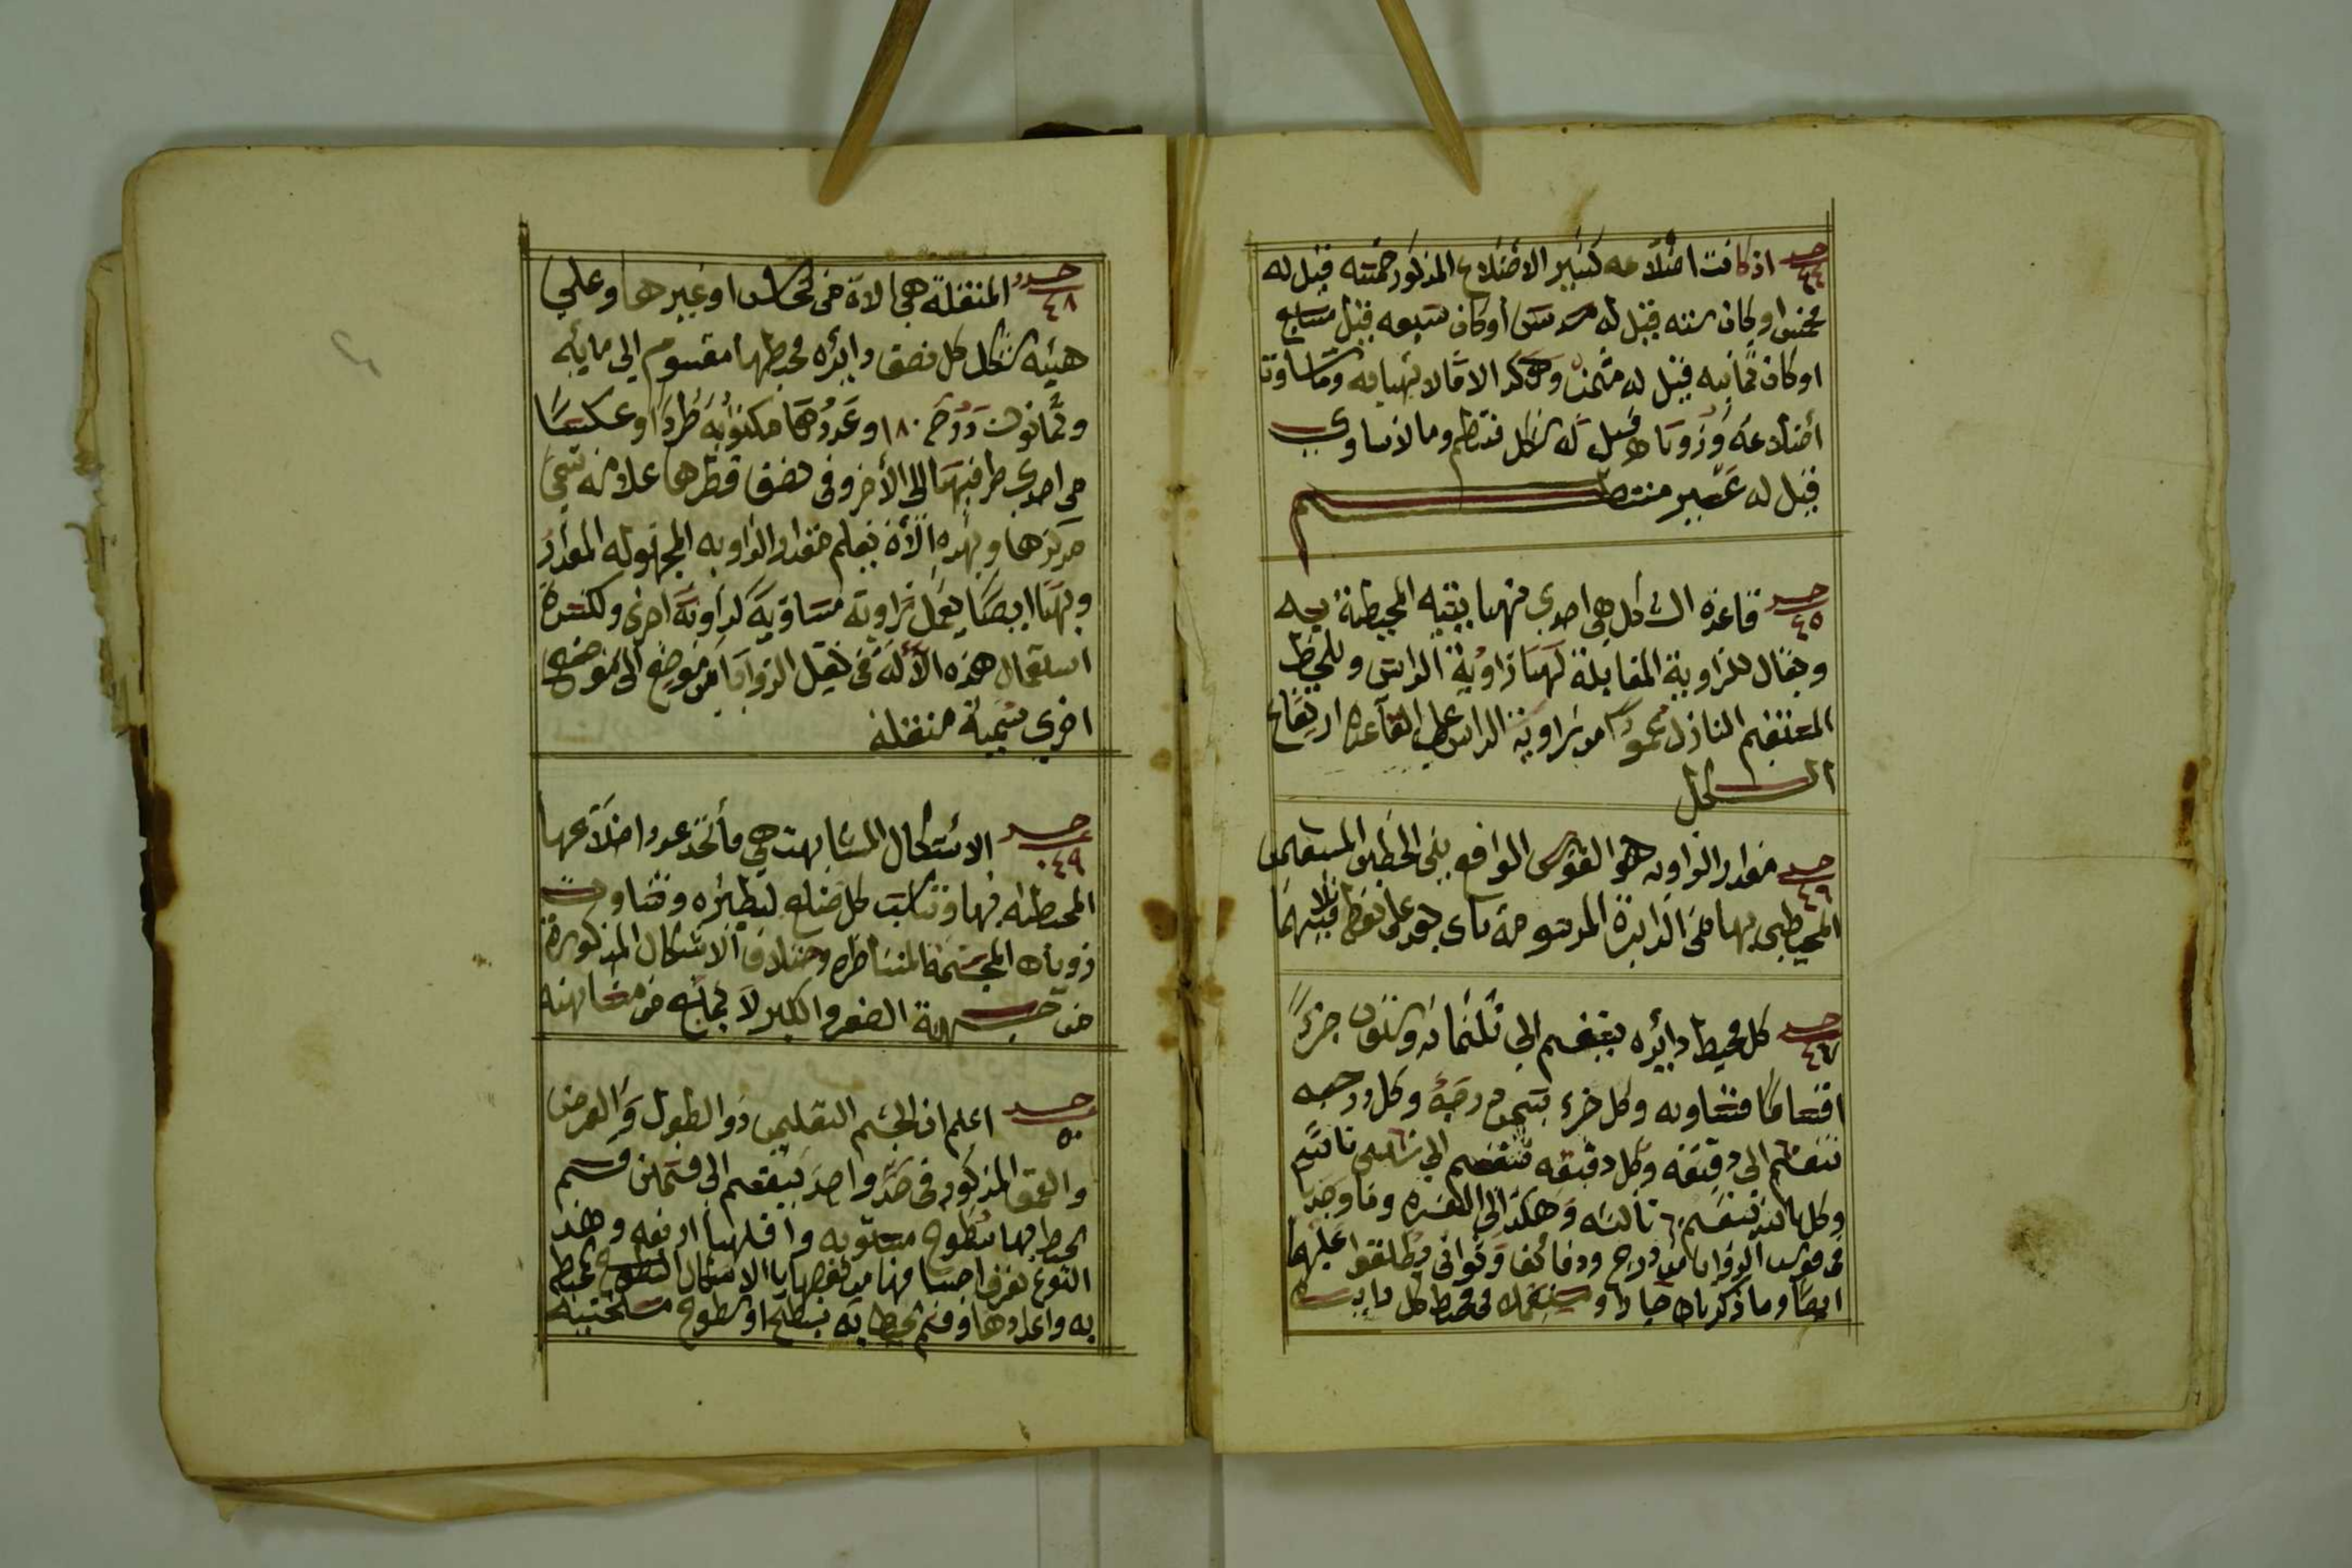 حد ٤٤ اذ كانت اضلاعه كثير الاضلاع المذكور خمسه قيل له
مخمس او كان سته قيل له مسدس أو كان سبعه قيل مسبع
او كان ثمانيه قيل له مثمن وهكذا الا مالا نهايه وما ساوت
أضلاعه وزوياه قيل له شكل منتظم وما لا تساوي
قيل له غير منتظم
حد ٤٥ قاعدة الشكل هي احدى منها بقيه المحيطة به
ويقال للزاوية المقابلة لها زاوية الراس وللخط
المستقيم النازل عمود من زاوية الراس على القاعده ارتفاع
الشكل
حد ٤٦ مقدار الزاويه هو القوس الواقع بين الخطين المستقيمين
المحيطين بها من الدايرة المرسومة باى بعد على نقط تلاقيهما
حد ٤٧ كل محيط دايره ينقسم الى ثلثمائه وستون جزءً
اقساما متساويه وكل جزء يسمى درجة وكل درجه
تنقسم ٦٠ الى دقيقه وكل دقيقه تنقسم الى ستين ثانيه
وكل ثانيه تنقسم ٦٠ ثالثه وهكذا الى العشره وما وجد
في قوس الزوايا من درج ودقائق وثواني يطلقوا عليها
ايضا وما ذكرناه في محيط كل دايره
حدد ٤٨ المنقلة هي الاة من نحاس او غيرها وعلي
هيئه شكل كل نصف دايره محيطها مقسوم الى مايه
وثمانون درجه ١٨٠ وعددها مكتوبه طردا وعكسا
من احدى طرفيها الى الأخر وفي نصف قطرها علامه تسمي
مركزها وبهذه الألة يعلم مقدار الزاويه المجهوله المقدار
وبها ايضا يعمل زاوية مساوية لزاوية اخرى ولكثرة
استعمال هذه الألة في نقل الزوايا من موضع الى موضع
اخرى سميت منقلة
حد ٤٩ الاشكال المتشابهت هي ما أتحد عدد اضلاعها
المحيطه بها وتناسب كل ضلع لنظيره وتساوت
زوياه المجسمة المتناظره واختلاف الاشكال المذكورة
من جهة الصغر والكبر لا يمانع من مشابهته
حد ٥٠ اعلم ان الجسم التعليمي ذو الطول والعرض
والعمق المذكور في حد واحد ينقسم الى قسمين قسم
يحيط بها سطوح مستويه واقلها اربعه وهذا
النوع تعرف اجسامها من بعضها بالاشكال السطوح تحيط
به واعدادها وقسم يحيط به سطح او سطوح منحنيه